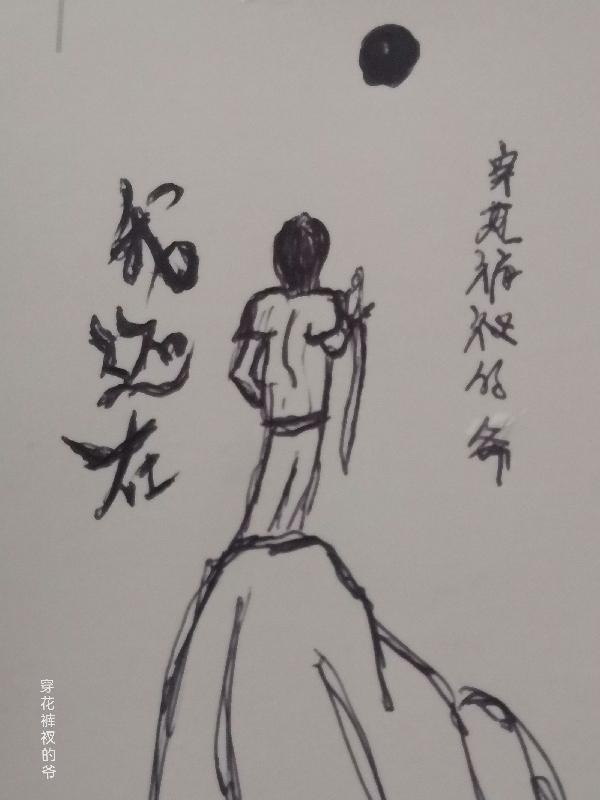 穿花裤衩的爷
我还在
穿花裤衩的爷